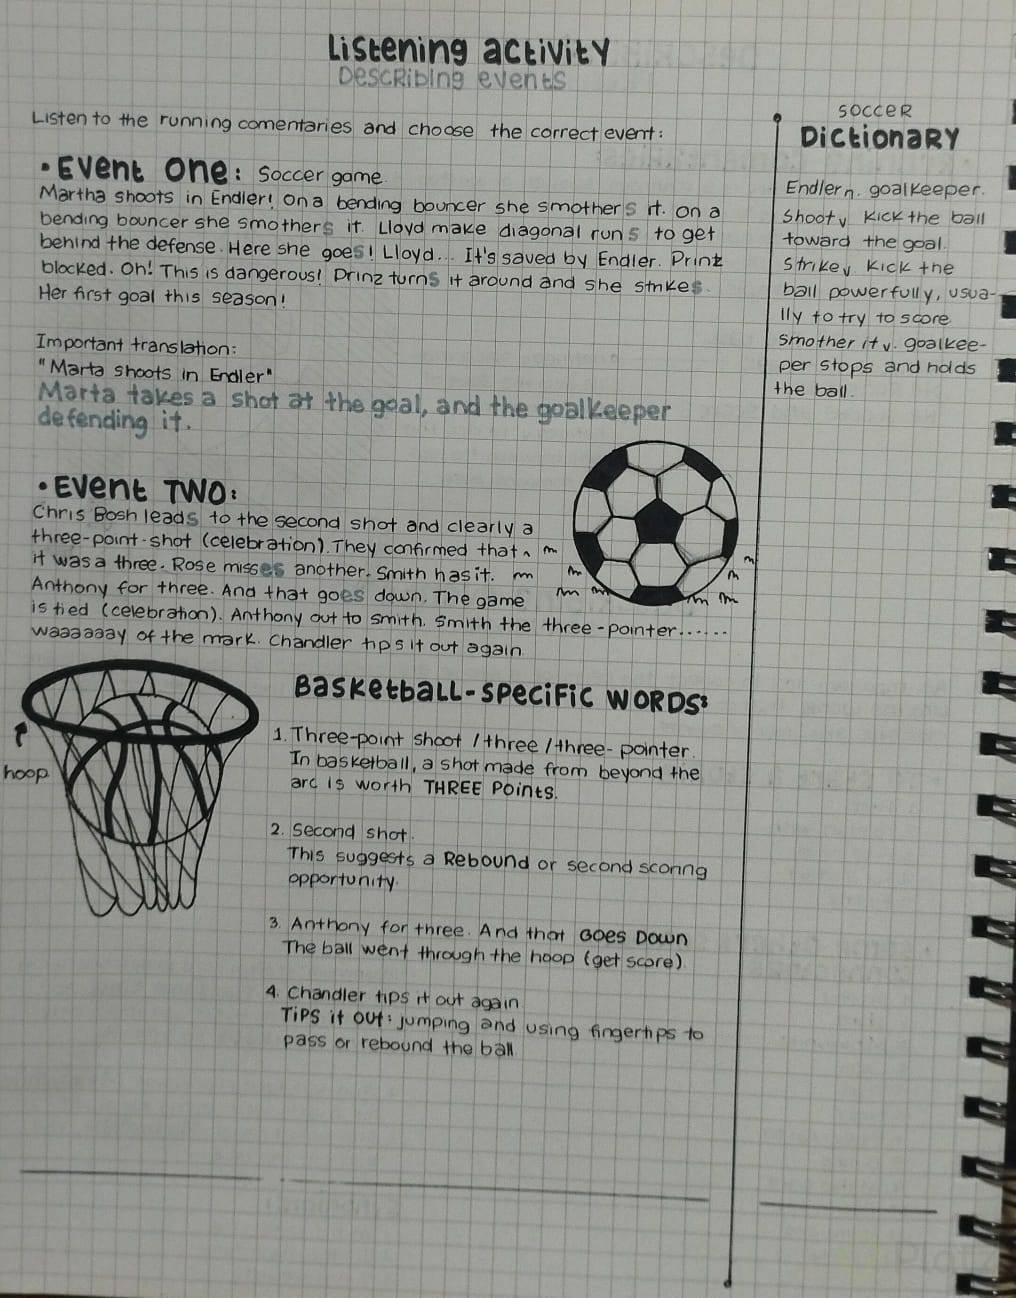 Listening activity
Describing events
Listen to the running comentaries and choose the correct event:
• Event One: Soccer game.
Martha shoots in Endler! On a bending bouncer she smothers it. On a
bending bouncer she smothers it. Lloyd make diagonal runs to get
behind the defense. Here she goes! Lloyd... It's saved by Endler. Prinz
blocked. Oh! This is dangerous! Prinz turns it around and she strikes.
Her first goal this season!
Important translation:
"Marta shoots in Endler"
Marta takes a shot at the goal, and the goalkeeper
defending it.
• Event Two:
Chris Bosh leads to the second shot and clearly a
three-point-shot (celebration). They confirmed that
it was a three. Rose misses another. Smith has it.
Anthony for three. And that goes down. The game
is tied (celebration). Anthony out to smith. Smith the three-pointer......
waaaaaay of the mark. Chandler tips it out again
hoop
Basketball-Specific Words:
1. Three-point shoot / three / three-pointer.
In basketball, a shot made from beyond the
arc is worth THREE Points.
2. Second shot.
This suggests a Rebound or second scoring
opportunity.
3. Anthony for three. And that Goes Down
The ball went through the hoop (get score).
4. Chandler tips it out again
Tips it out: jumping and using fingertips to
pass or rebound the ball
Soccer
Dictionary
Endler n. goalkeeper.
Shoot v kick the ball
toward the goal.
Strike v kick the
ball powerfully, usua-
lly to try to score
Smother it v. goalkee-
per stops and holds
the ball.